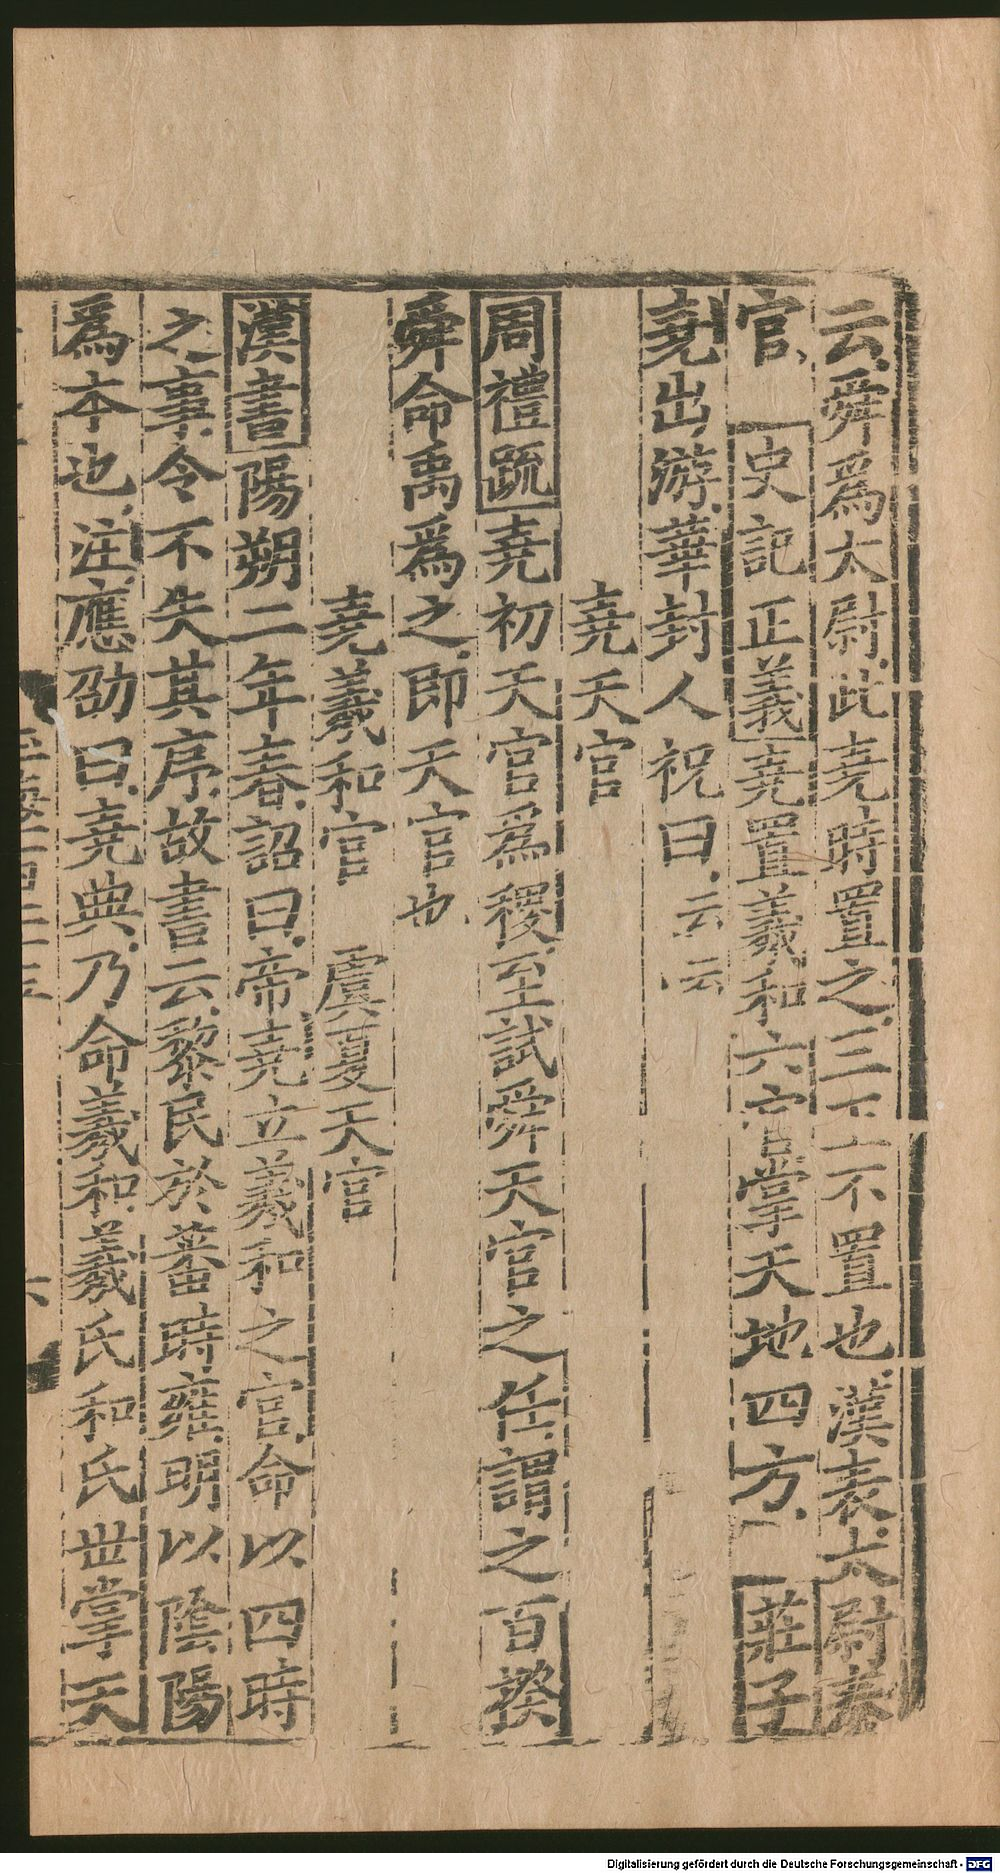 云舜爲太尉此堯時置之三王不置也漢表太尉秦
官 史記正義堯置羲和六官掌天地四方 莊子
堯出游華封人祝曰云云
堯天官
周禮疏堯初天官爲稷至試舜天官之任謂之百揆
舜命禹爲之即天官也
堯羲和官 虞夏天官
漢書陽朔二年春詔曰帝堯立羲和之官命以四時
之事令不失其序故書云黎民於蕃時雍明以陰陽
爲本也注應劭曰堯典乃命羲和羲氏和氏世掌天
六
Digitalisierung gefördert durch die Deutsche Forschungsgemeinschaft - DFG